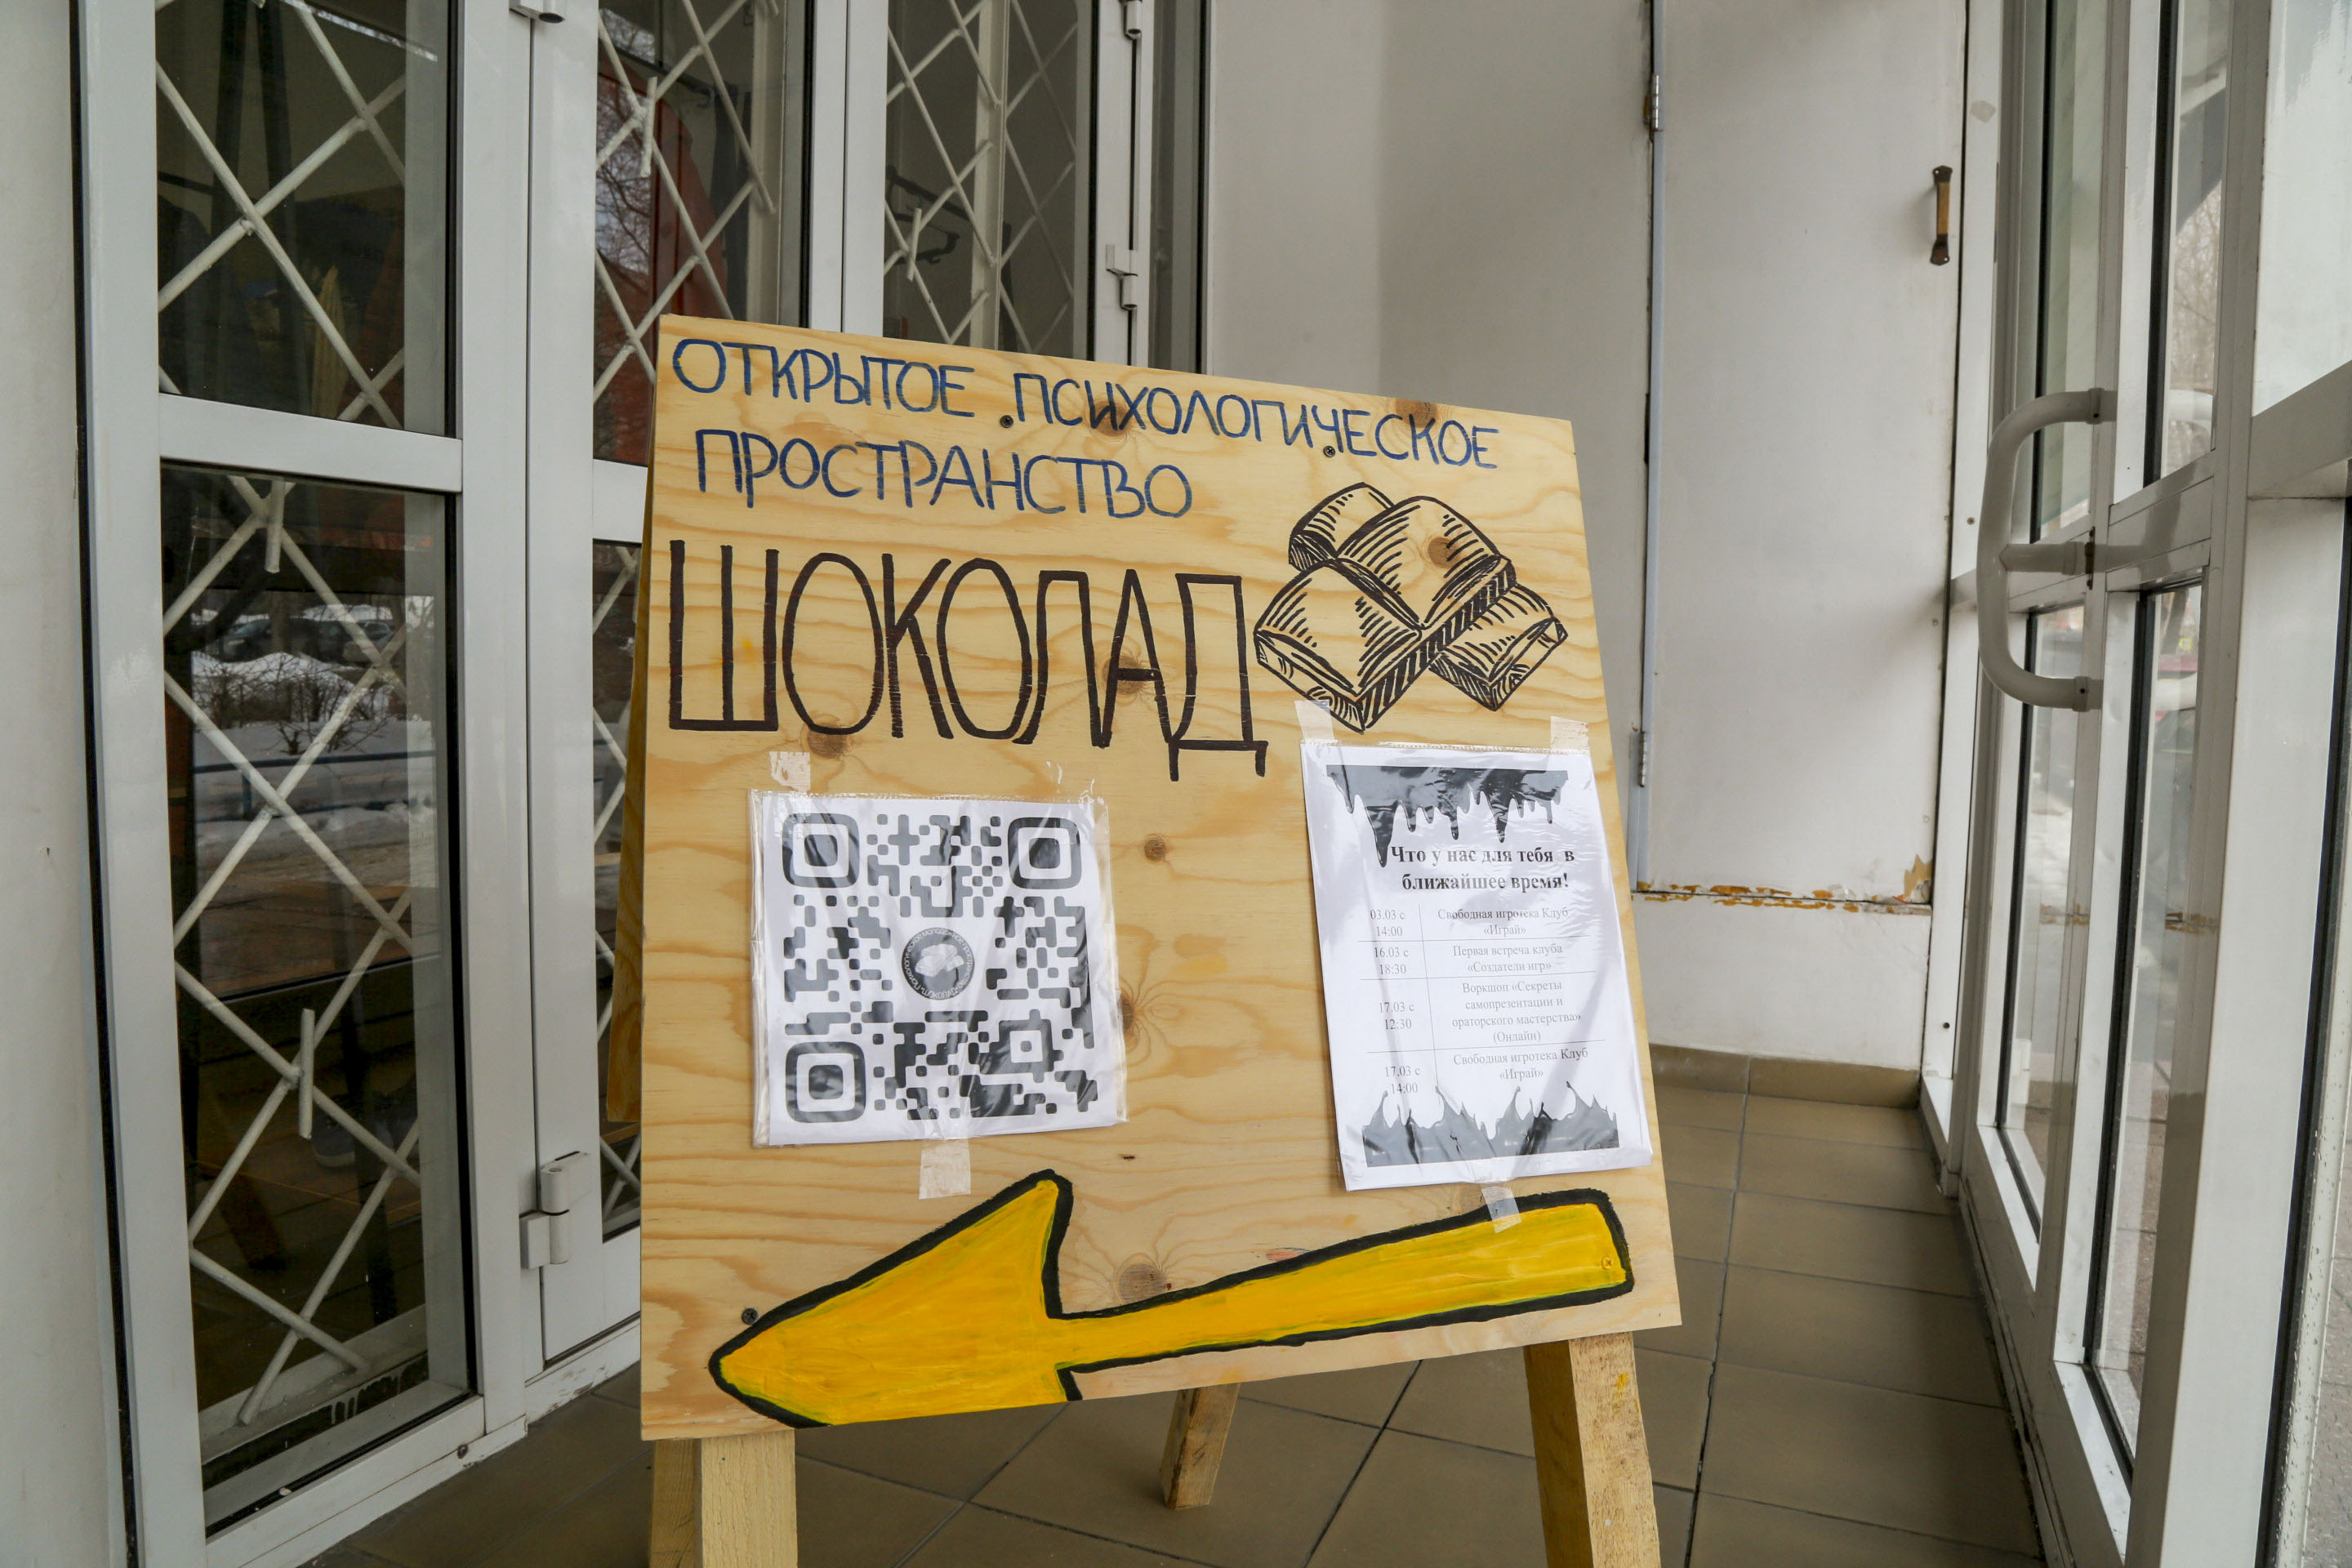 ОТКРЫТОЕ ПСИХОЛОГИЧЕСКОЕ
ПРОСТРАНСТВО
ШОКОЛАД
Что у нас для тебя в
ближайшее время!
03.03 с
14:00
Свободная игротека Клуб
«Играй»
16.03 с
18:30
Первая встреча клуба
«Создатели игр»
17.03 с
12:30
Воркшоп «Секреты
самопрезентации и
ораторского мастерства»
(Онлайн)
17.03 с
14:00
Свободная игротека Клуб
«Играй»